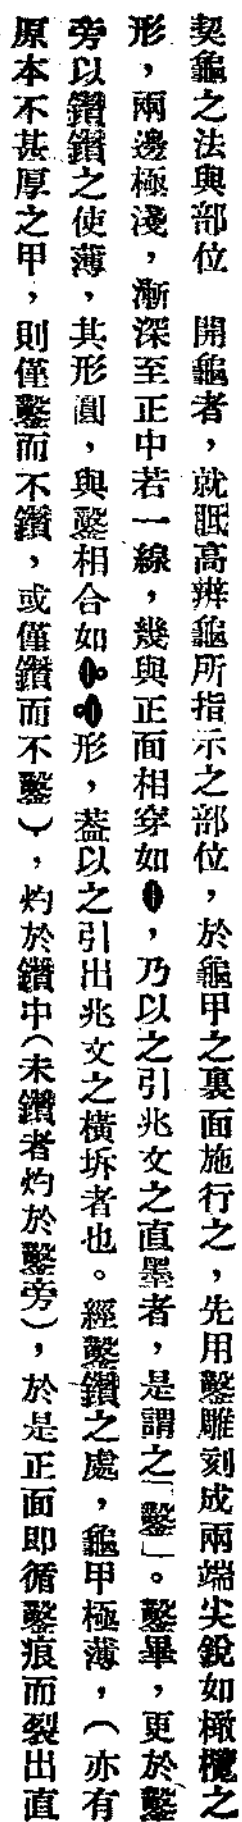 契龜之法與部位　開龜者，就眂高辨龜所指示之部位，於龜甲之裏面施行之，先用鑿雕刻成兩端尖銳如橄欖之
形，兩邊極淺，漸深至正中若一線，幾與正面相穿如，乃以之引兆文之直墨者，是謂之「鑿」。鑿畢，更於鑿
旁以鑽鑽之使薄，其形圓，與鑿相合如形，葢以之引出兆文之橫坼者也。經鑿鑽之處，龜甲極薄，（亦有
原本不甚厚之甲，則僅鑿而不鑽，或僅鑽而不鑿），灼於鑽中（未鑽者灼於鑿旁），於是正面即循鑿痕而裂出直